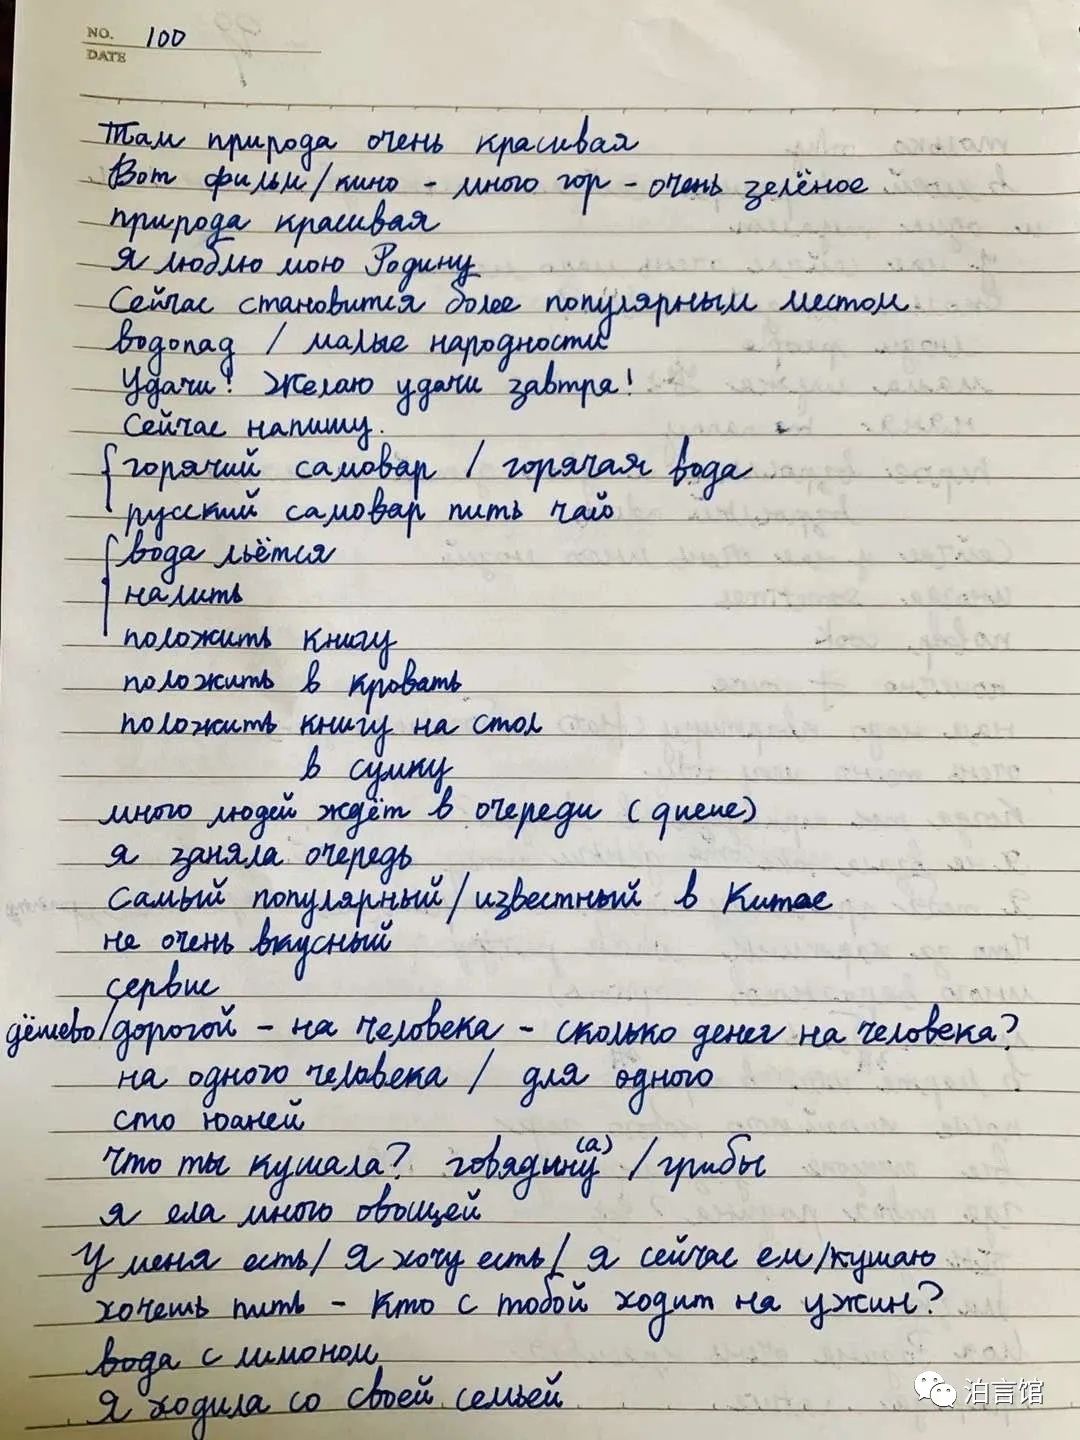 NO. 100
DATE
Там природа очень красивая
Вот фильм/кино - много гор - очень зелёное
природа красивая
Я люблю мою Родину
Сейчас становится более популярным местом
водопад / малые народности
Удачи! Желаю удачи завтра!
Сейчас напишу.
горячий самовар / горячая вода
русский самовар пить чаю
вода льётся
налить
положить книгу
положить в кровать
положить книгу на стол
в сумку
много людей ждёт в очереди (queue)
я заняла очередь
Самый популярный/известный в Китае
не очень вкусный
сервис
дёшево/дорогой - на человека - сколько денег на человека?
на одного человека / для одного
сто юаней
Что ты кушала? говядину(а) / грибы
я ела много овощей
У меня есть/ Я хочу есть/ Я сейчас ем/кушаю
хочешь пить - Кто с тобой ходит на ужин?
вода с лимоном
Я ходила со своей семьей
泊言馆